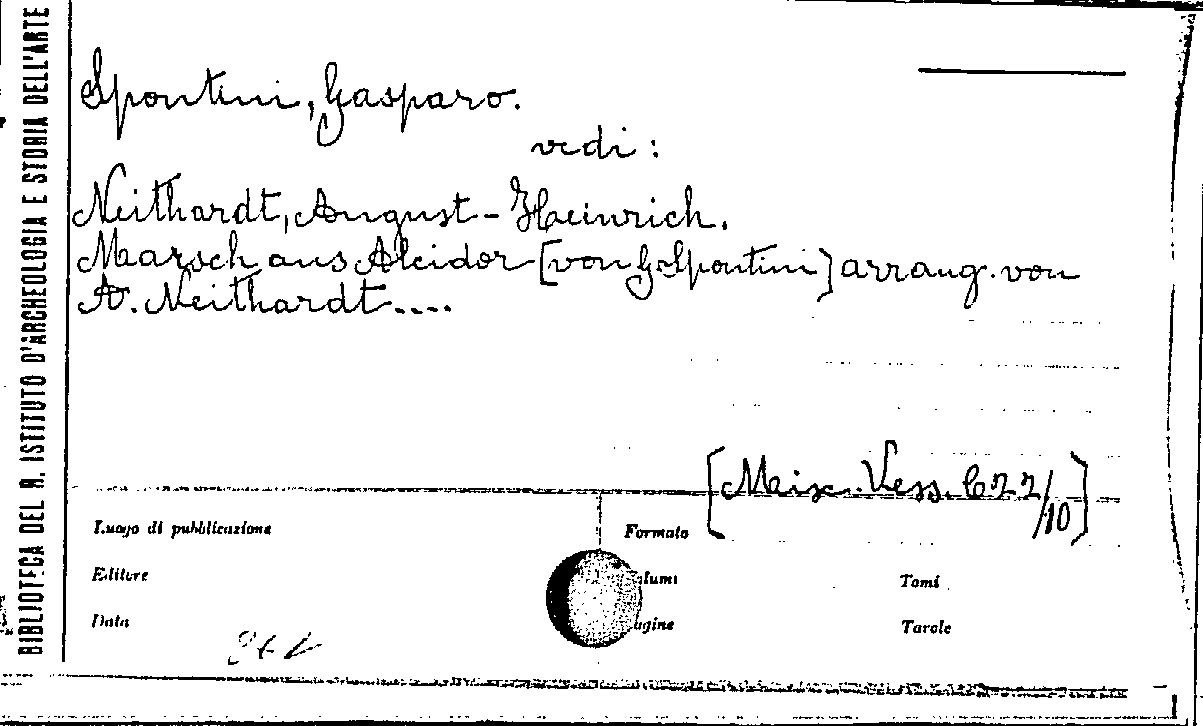 BIBLIOTECA DEL R. ISTITUTO D'ARCHEOLOGIA E STORIA DELL'ARTE
Spontini, Gasparo.
vedi :
Neithardt, August-Heinrich.
Marsch aus Alcidor [von G. Spontini] arrang. von
A. Neithardt....
[Misc. Vess. C 22/10]
Luogo di pubblicazione
Formato
Editore
lumi
Tomi
Data
agine
Tavole